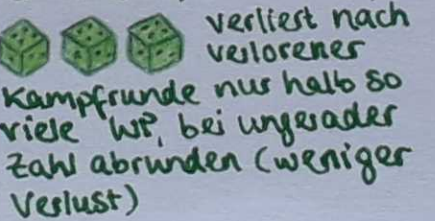 verliert nach
verlorener
Kampfrunde nur halb so
viele WP, bei ungerader
Zahl abrunden (weniger
Verlust)